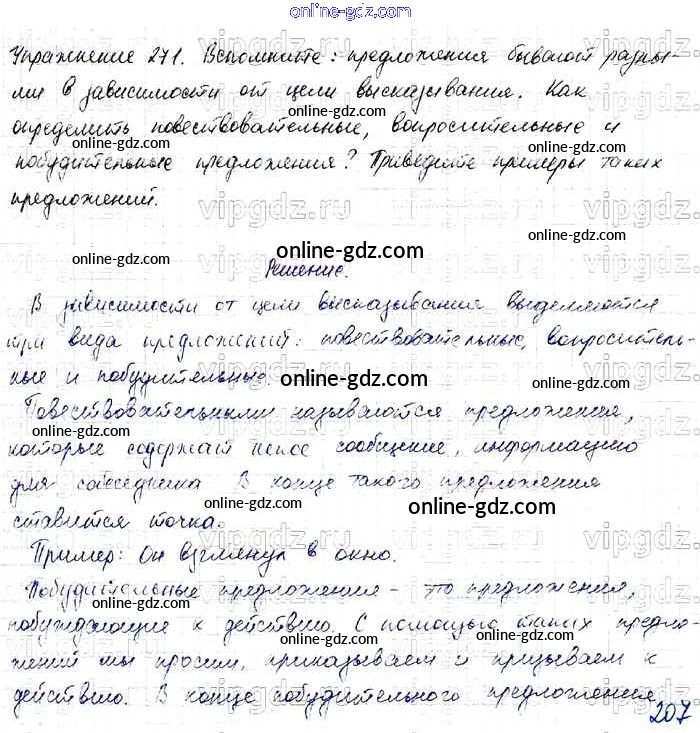 online-gdz.com
Упражнение 271. Вспомните: предложения бывают разны-
ми в зависимости от цели высказывания. Как
online-gdz.com
определить повествовательные, вопросительные и
online-gdz.com
побудительные предложения? Приведите примеры таких
предложений.
vipgdz.ru
online-gdz.com
Решение.
В зависимости от цели высказывания выделяются
online-gdz.com
три вида предложений: повествовательные, вопроситель-
ные и побудительные.
online-gdz.com
Повествовательными называются предложения,
online-gdz.com
которые содержат некое сообщение, информацию
для собеседника. В конце такого предложения
online-gdz.com
ставится точка.
Пример: Он взглянул в окно.
online-gdz.com
Побудительные предложения – это предложения,
online-gdz.com
побуждающие к действию. С помощью таких предло-
online-gdz.com
жений мы просим, приказываем и призываем к
действию. В конце побудительного предложения
online-gdz.com
207